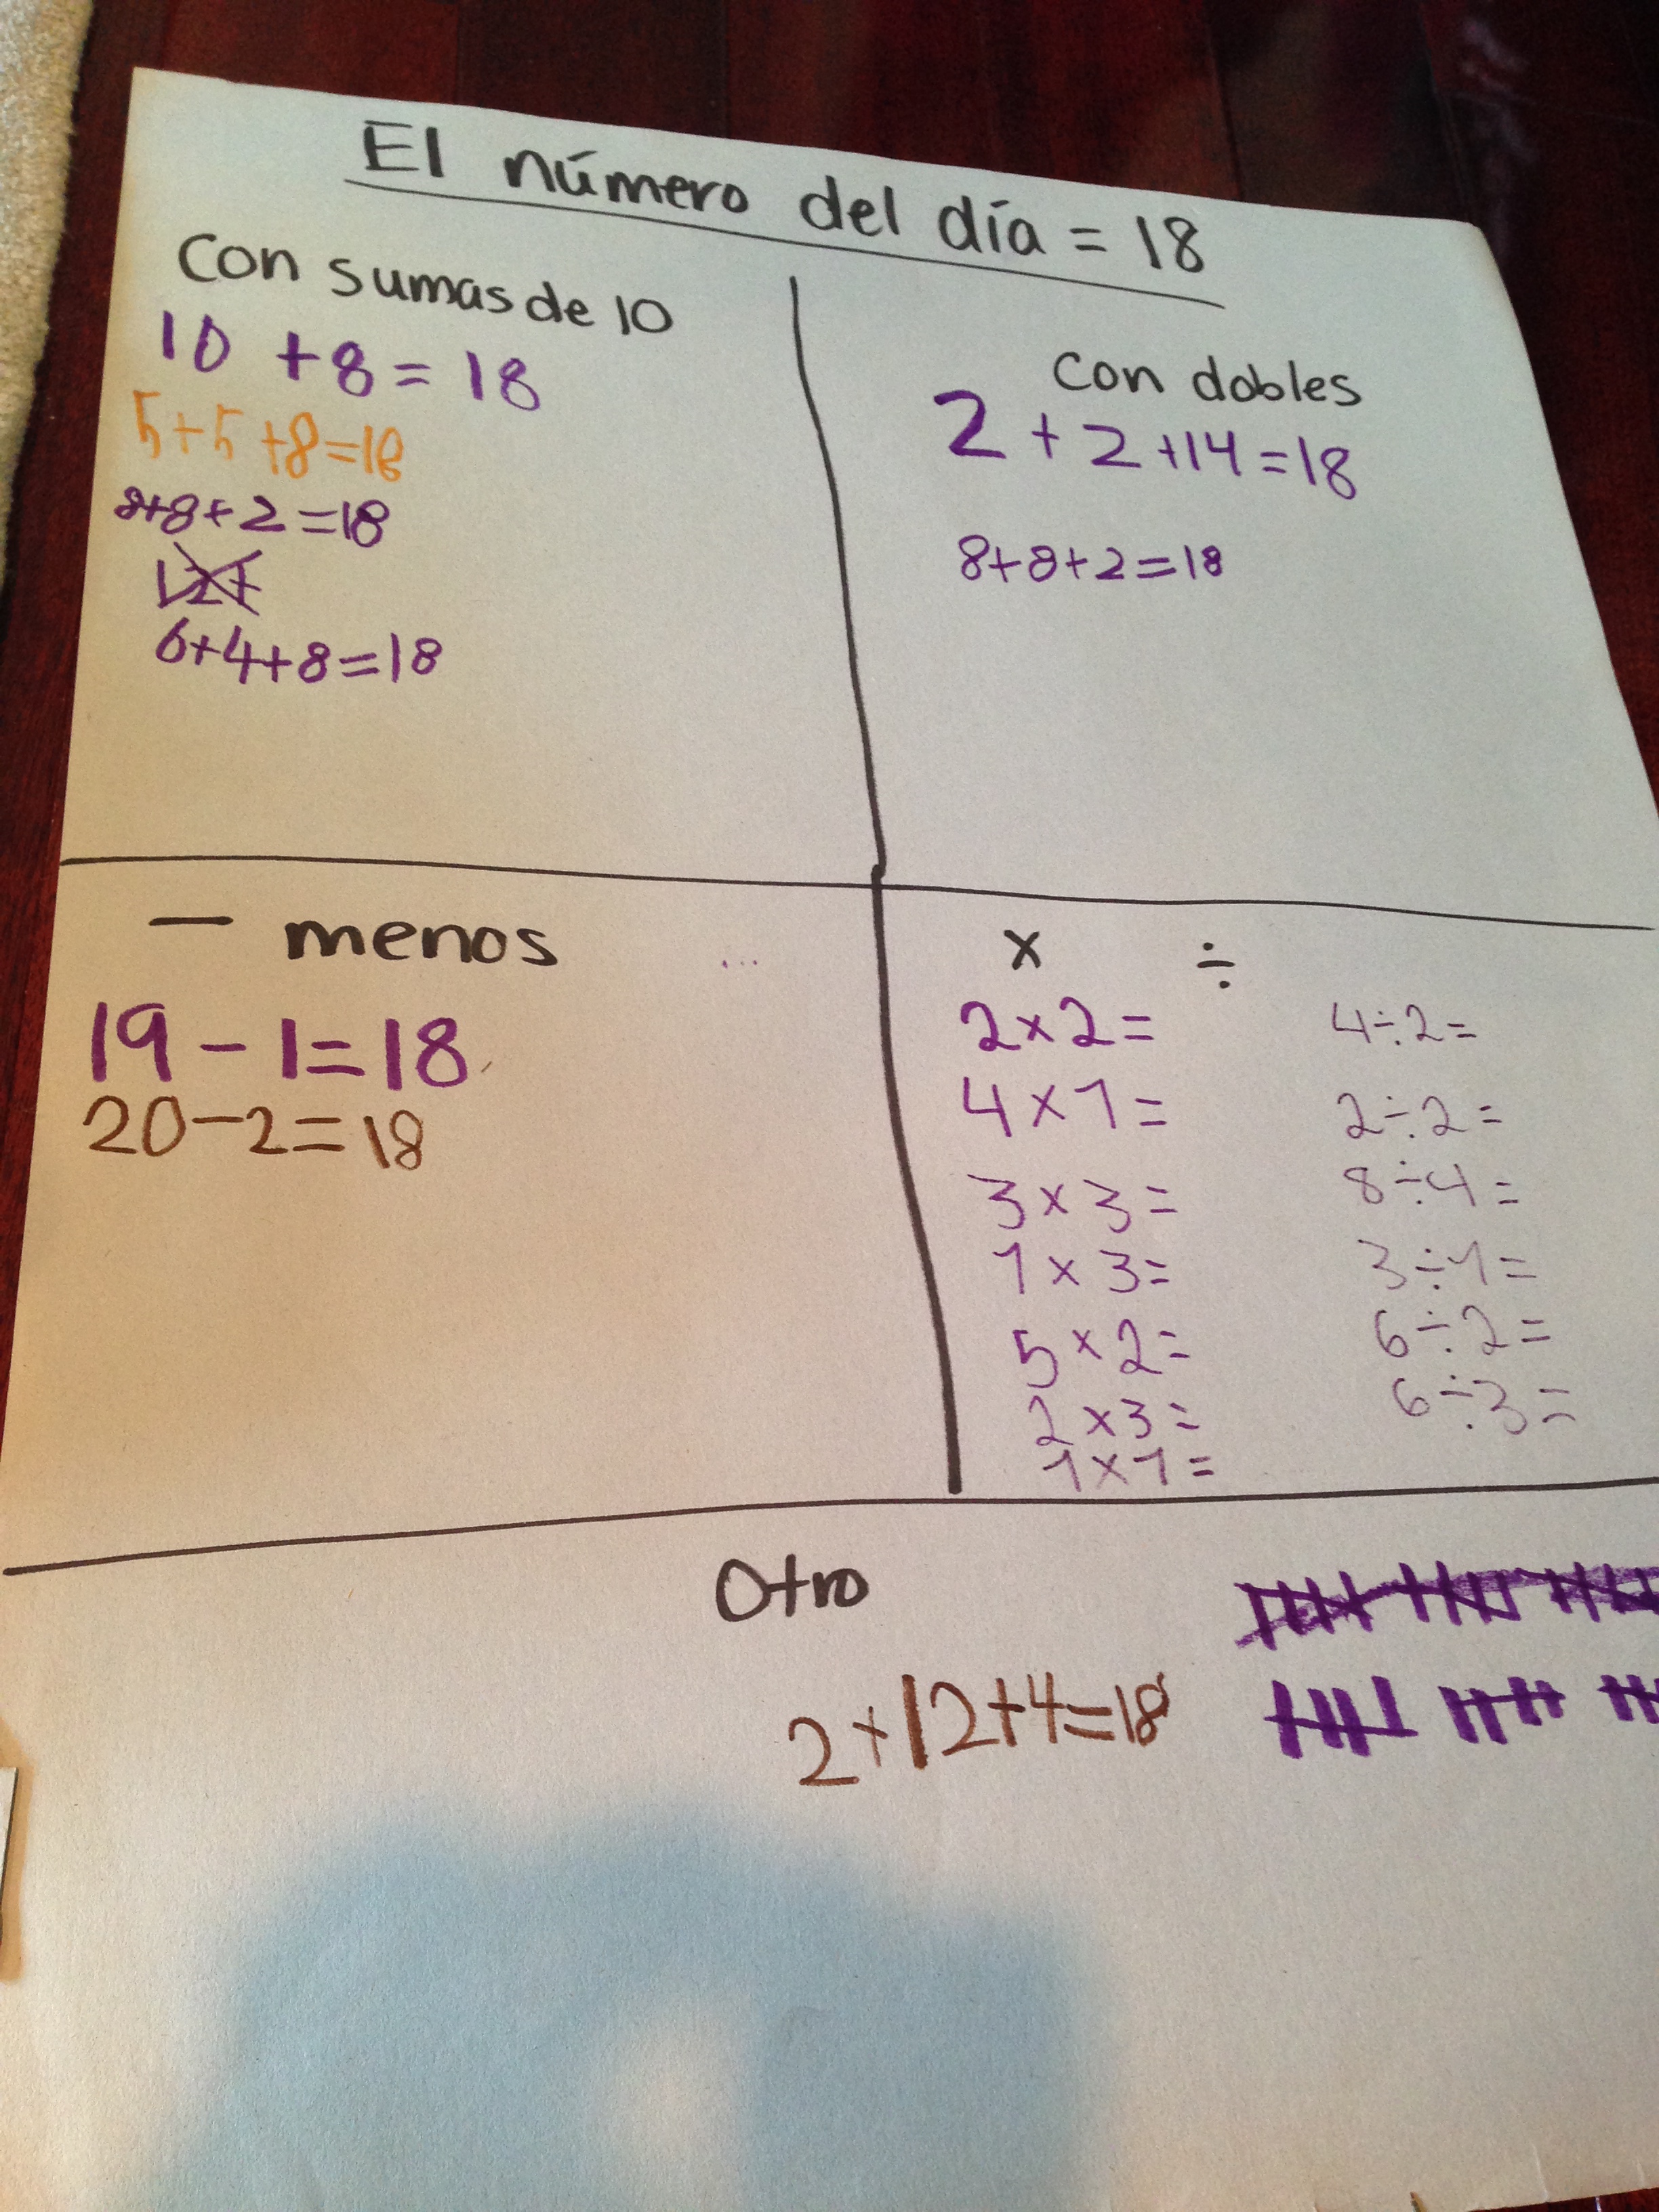 El número del día = 18
Con sumas de 10
10 + 8 = 18
5+5+8=18
8+8+2=18
6+4+8=18
Con dobles
2+2+14=18
8+8+2=18
— menos
19-1=18
20-2=18
x ÷
2x2=
4x1=
3x3=
1x3=
5x2=
2x3=
1x1=
4÷2=
2÷2=
8÷4=
3÷1=
6÷2=
6÷3=
Otro
2+12+4=18